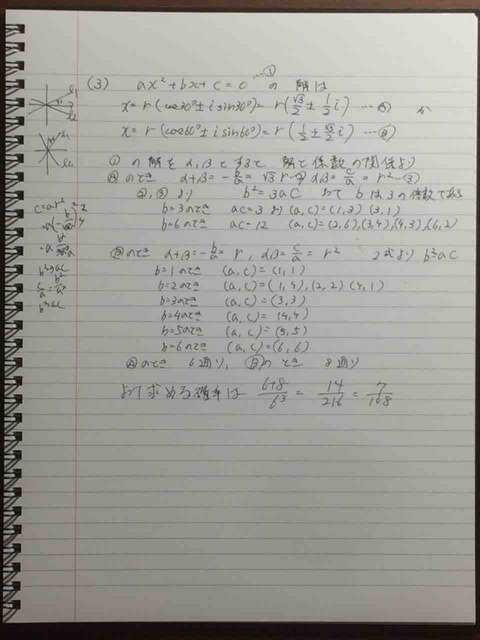 (3) ax²+bx+c=0 …① の 解は
x=r(cos30°±i sin30°)=r(√3/2±1/2i) …Ⓐ か
x=r(cos60°±i sin60°)=r(1/2±√3/2i) …Ⓑ
①の解をα,βとすると 解と係数の関係より
Ⓐのとき α+β=-b/a=√3r-② αβ=c/a=r²-③
②,③より b²=3ac よって bは3の倍数である
b=3のとき ac=3より(a,c)=(1,3)(3,1)
b=6のとき ac=12 (a,c)=(2,6),(3,4),(4,3),(6,2)
Ⓑのとき α+β=-b/a=r, αβ=c/a=r² 2式より b²=ac
b=1のとき (a,c)=(1,1)
b=2のとき (a,c)=(1,4),(2,2)(4,1)
b=3のとき (a,c)=(3,3)
b=4のとき (a,c)=(4,4)
b=5のとき (a,c)=(5,5)
b=6のとき (a,c)=(6,6)
Ⓐのとき 6通り, Ⓑのとき 8通り
よって求める確率は 6+8/6³=14/216=7/108
l₁
l₂
l₁
l₂
c=ar²
b²=ac
c/a=
b²=ac